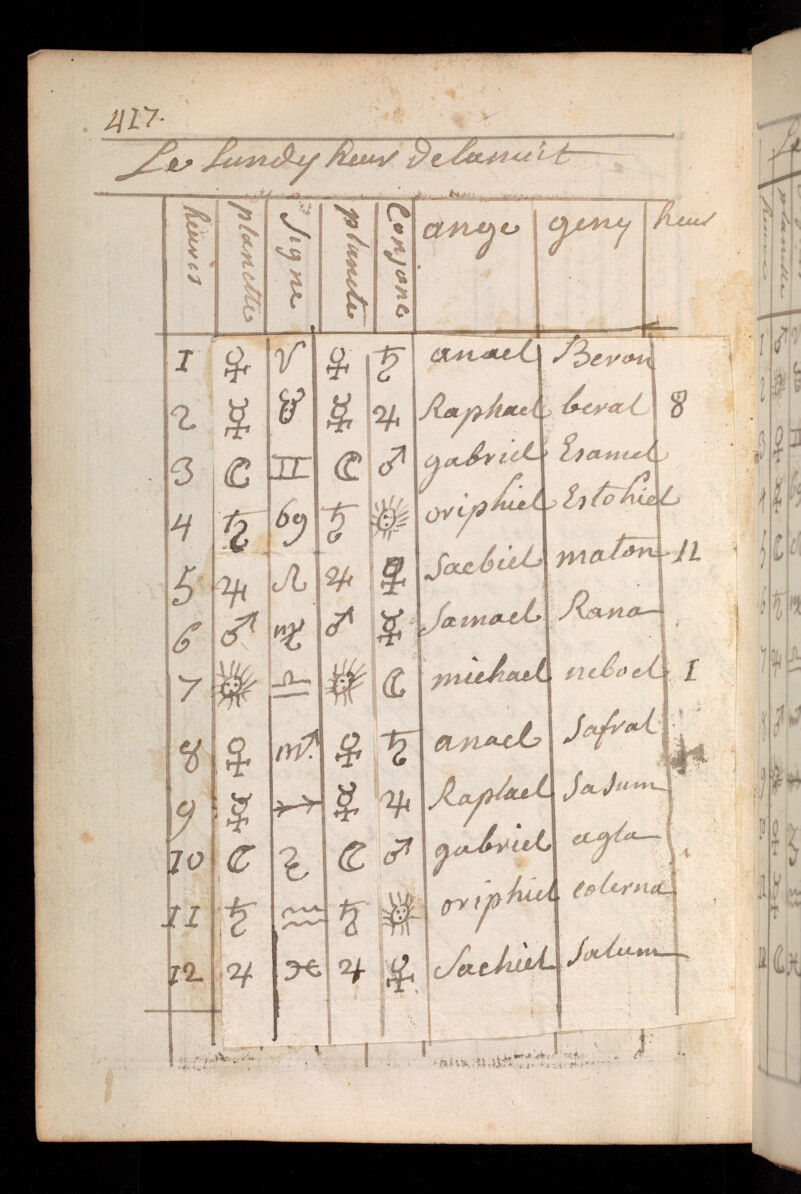 417.
Le Lundy heur de la nuit
heures planette signe planete Conjone ange geny heur
1 ♀ ♈ ♀ ♄ anael Beron
2 ☿ ♉ ☿ ♃ Raphael beral 8
3 ☾ ♊ ☾ ♂ gabriel Esamel
4 ♄ ♋ ♄ ☉ oriphiel Estohiel
5 ♃ ♌ ♃ ♀ Sacbiel maton 11
6 ♂ ♍ ♂ ☿ Samael Rana
7 ☉ ♎ ☉ ☾ michael neboel 1
8 ♀ ♏ ♀ ♄ anael Safral
9 ☿ ♐ ☿ ♃ Raplael Sasum
10 ☾ ♑ ☾ ♂ gabriel agla
11 ♄ ♒ ♄ ☉ oriphiel eolerna
12 ♃ ♓ ♃ ♀ Sachiel Salum